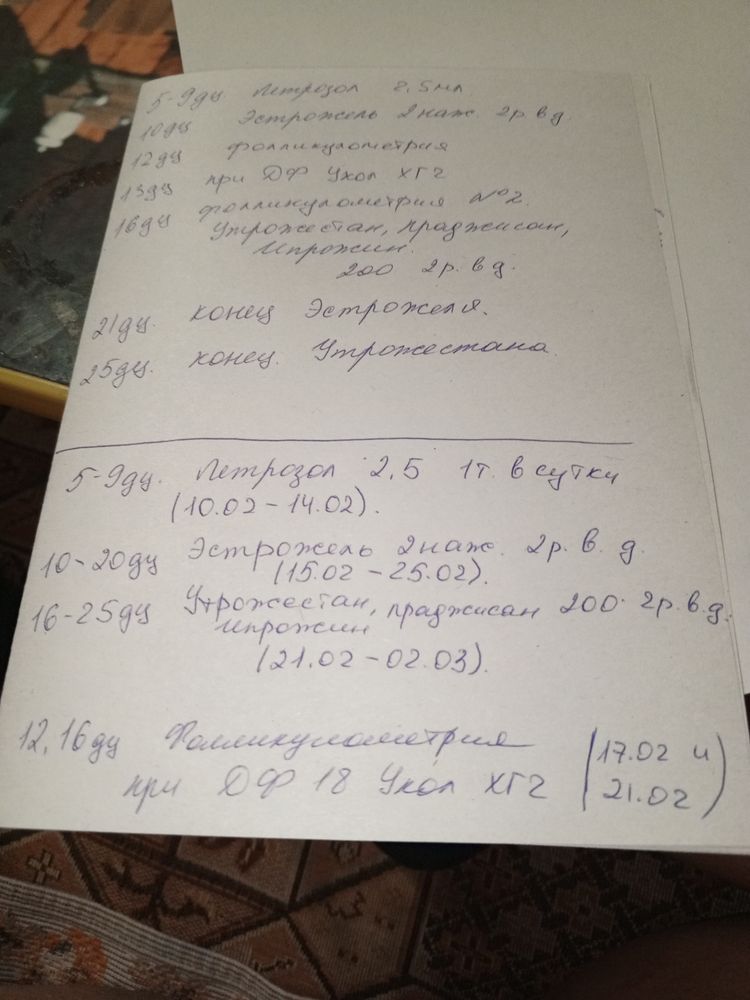 5-9дц Летрозол 2,5мл.
10дц Эстрожель 2наж. 2р. в д.
12дц фолликулометрия
13дц при ДФ Укол ХГЧ
16дц фолликулометрия №2.
Утрожестан, праджисан,
Ипрожин.
200 2р. в д.
21дц. конец Эстрожеля.
25дц. конец. Утрожестана.
5-9дц. Летрозол 2,5 1т. в сутки
(10.02-14.02).
10-20дц Эстрожель 2наж. 2р. в. д.
(15.02-25.02).
16-25дц Утрожестан, праджисан 200. 2р. в. д.
Ипрожин
(21.02-02.03).
12,16дц Фолликулометрия (17.02 и
при ДФ 18 Укол ХГЧ 21.02)